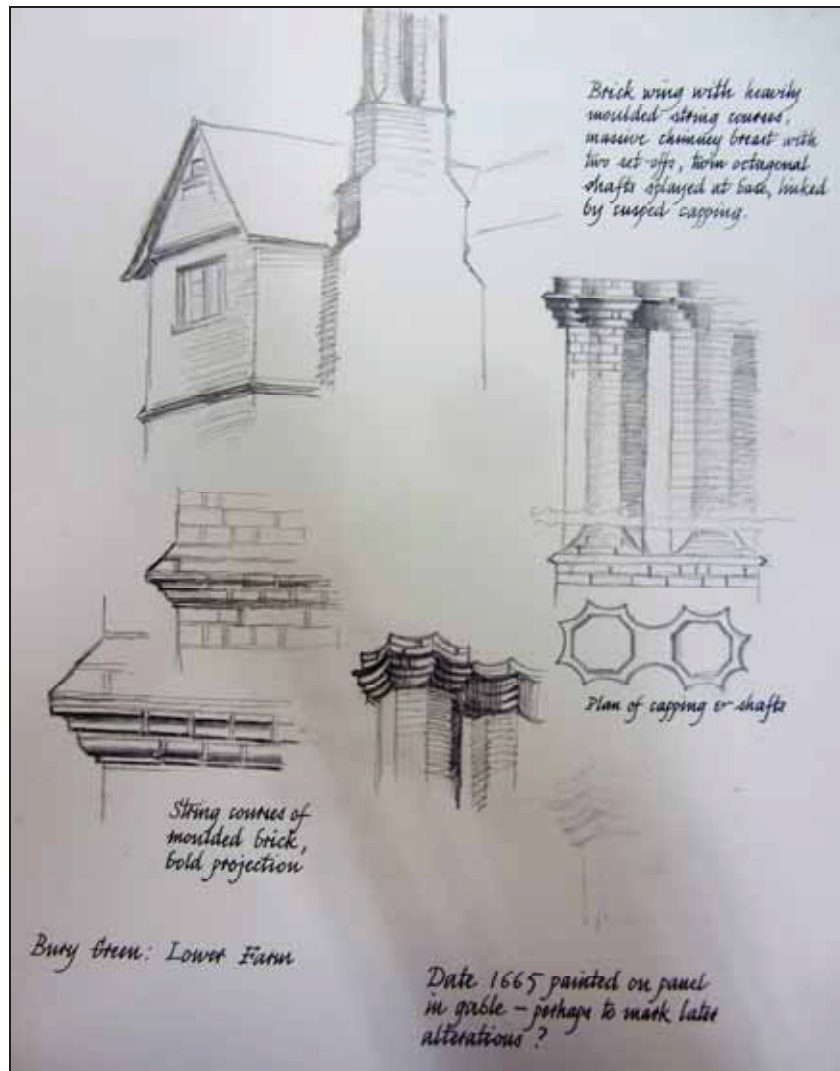 Brick wing with heavily
moulded string courses,
massive chimney breast with
two set-offs, twin octagonal
shafts splayed at base, linked
by cusped capping.
Plan of capping & shafts
String courses of
moulded brick,
bold projection
Bury Green: Lower Farm
Date 1665 painted on panel
in gable – perhaps to mark later
alterations ?